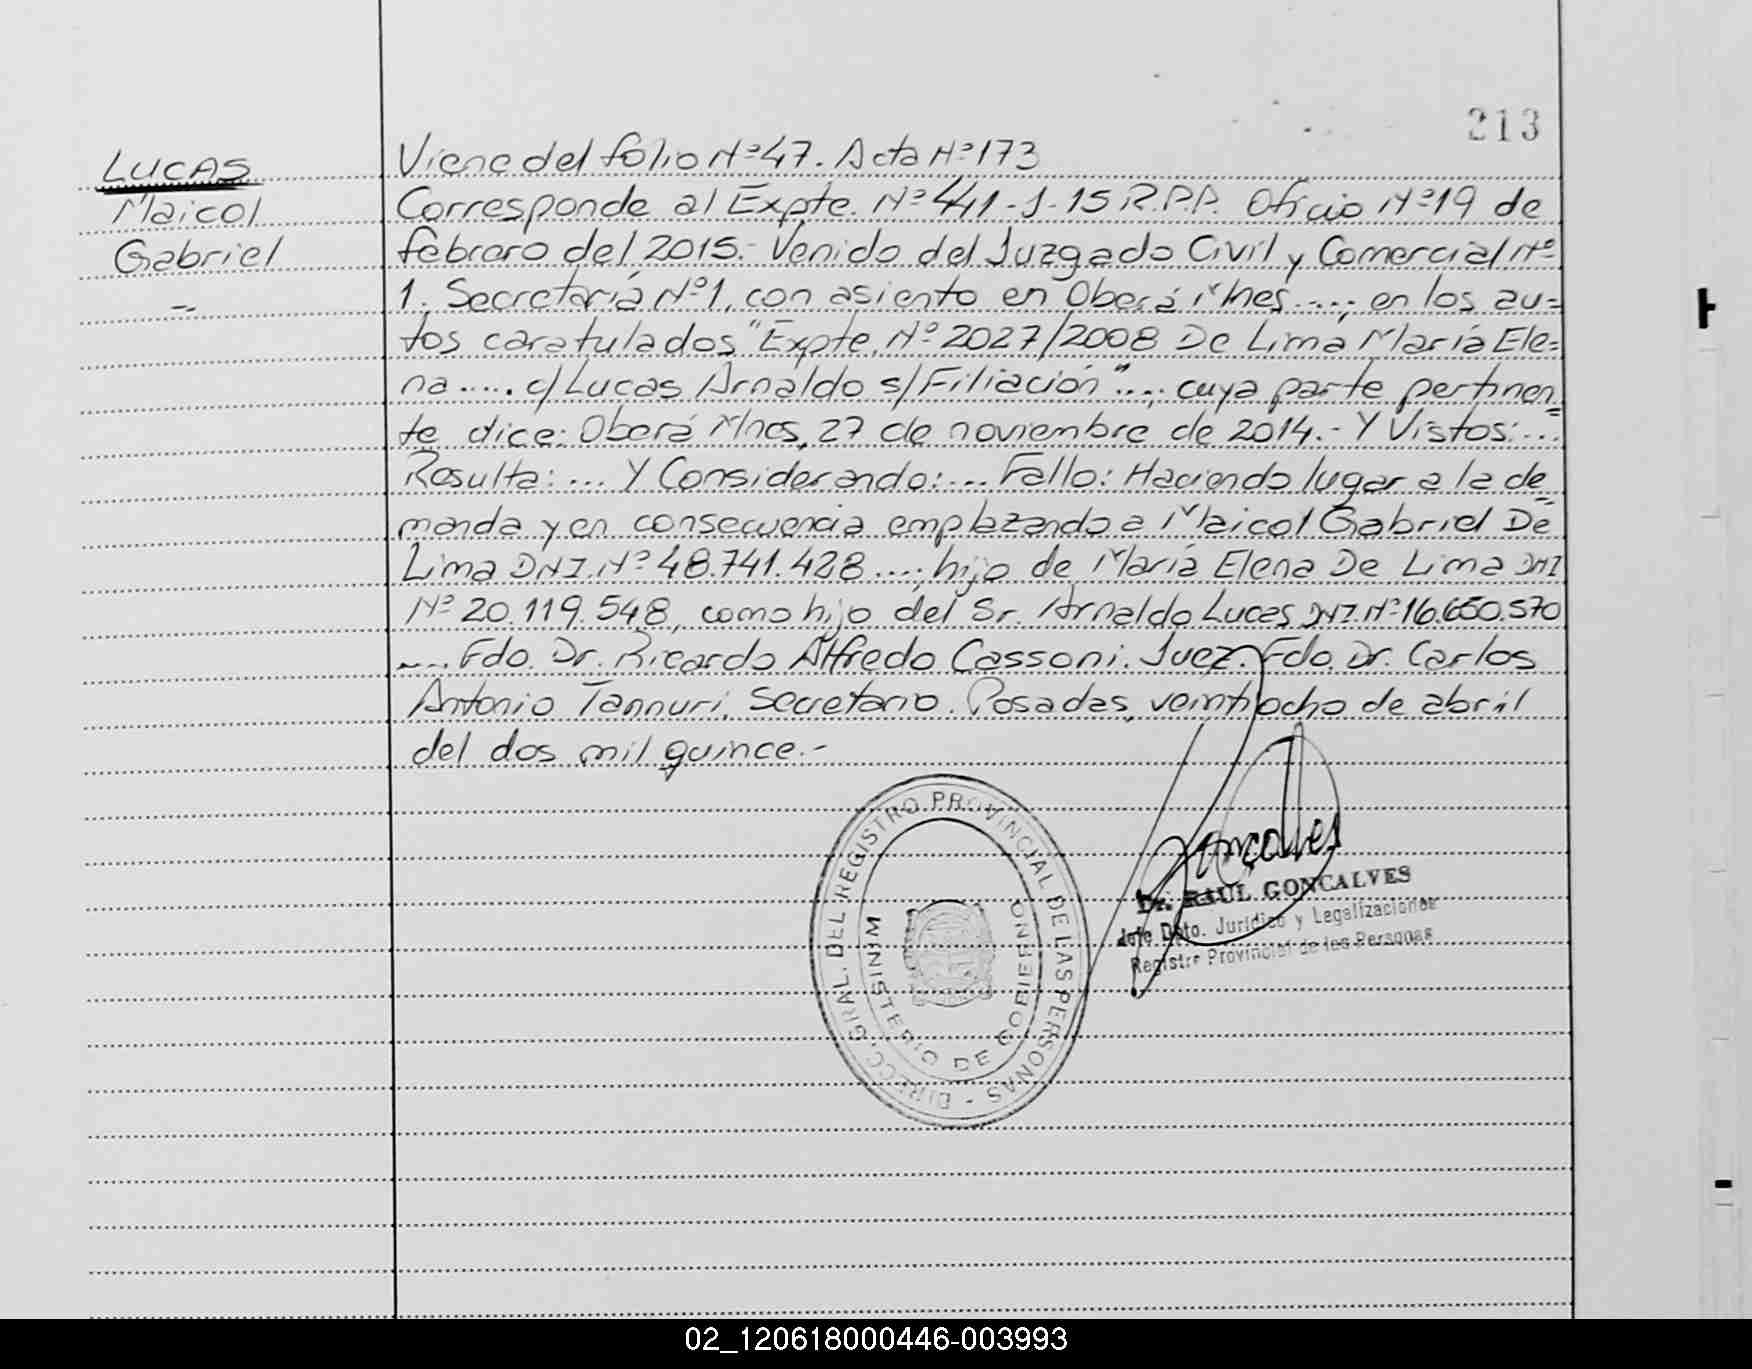 213
LUCAS
Maicol
Gabriel
--
Viene del folio Nº 47. Acta Nº 173
Corresponde al Expte. Nº 441-J-15 R.P.P. Oficio Nº 19 de
febrero del 2015.- Venido del Juzgado Civil y Comercial Nº
1. Secretaría Nº 1, con asiento en Oberá Mnes....; en los au=
tos caratulados "Expte. Nº 2027/2008 De Lima María Ele=
na..... c/ Lucas Arnaldo s/ Filiación"...; cuya parte pertinen=
te dice: Oberá Mnes, 27 de noviembre de 2014.- Y Vistos:...
Resulta:... Y Considerando:... Fallo: Haciendo lugar a la de=
manda y en consecuencia emplazando a Maicol Gabriel De
Lima DNI. Nº 48.741.428....; hijo de María Elena De Lima DNI
Nº 20.119.548, como hijo del Sr. Arnaldo Lucas DNI. Nº 16.650.570
..... Fdo. Dr. Ricardo Alfredo Cassoni. Juez. Fdo. Dr. Carlos
Antonio Tannuri. Secretario. Posadas, veintiocho de abril
del dos mil quince.-
DIRECC. GRAL. DEL REGISTRO PROVINCIAL DE LAS PERSONAS -
MINISTERIO DE GOBIERNO
Goncalves
Dr. RAUL GONCALVES
Jefe Dpto. Jurídico y Legalizaciones
Registro Provincial de las Personas
02_120618000446-003993